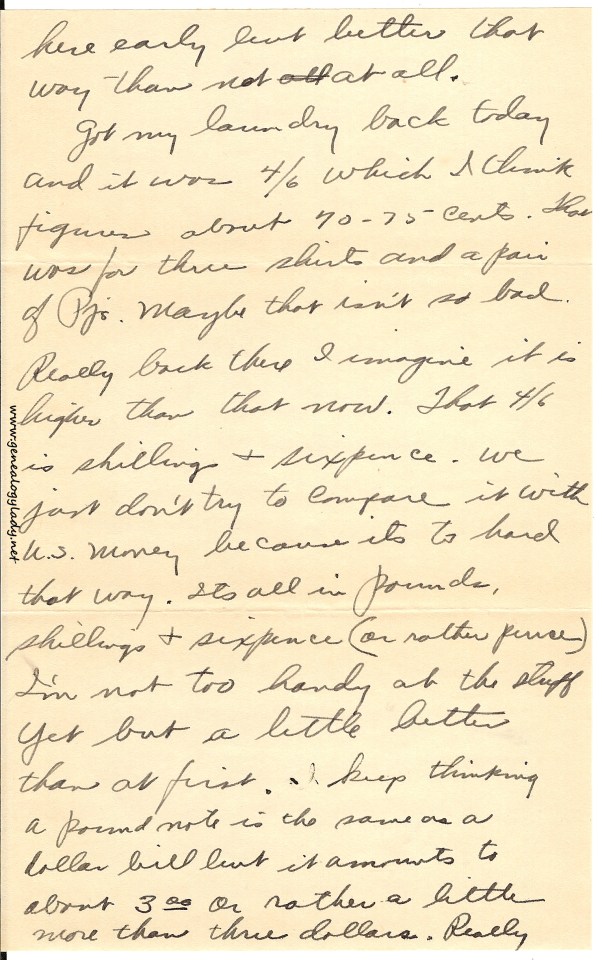 here early but better that
way than not all at all.
Got my laundry back today
and it was 4/6 which I think
figures about 70-75 cents. That
was for three shirts and a pair
of Pjs. Maybe that isn't so bad.
Really back there I imagine it is
higher than that now. That 4/6
is shillings + sixpence. We
just don't try to compare it with
U.S. money because its to hard
that way. Its all in pounds,
shillings + sixpence (or rather pence)
I'm not too handy at the stuff
yet but a little better
than at first. I keep thinking
a pound note is the same as a
dollar bill but it amounts to
about 3.00 or rather a little
more than three dollars. Really
www.genealogylady.net